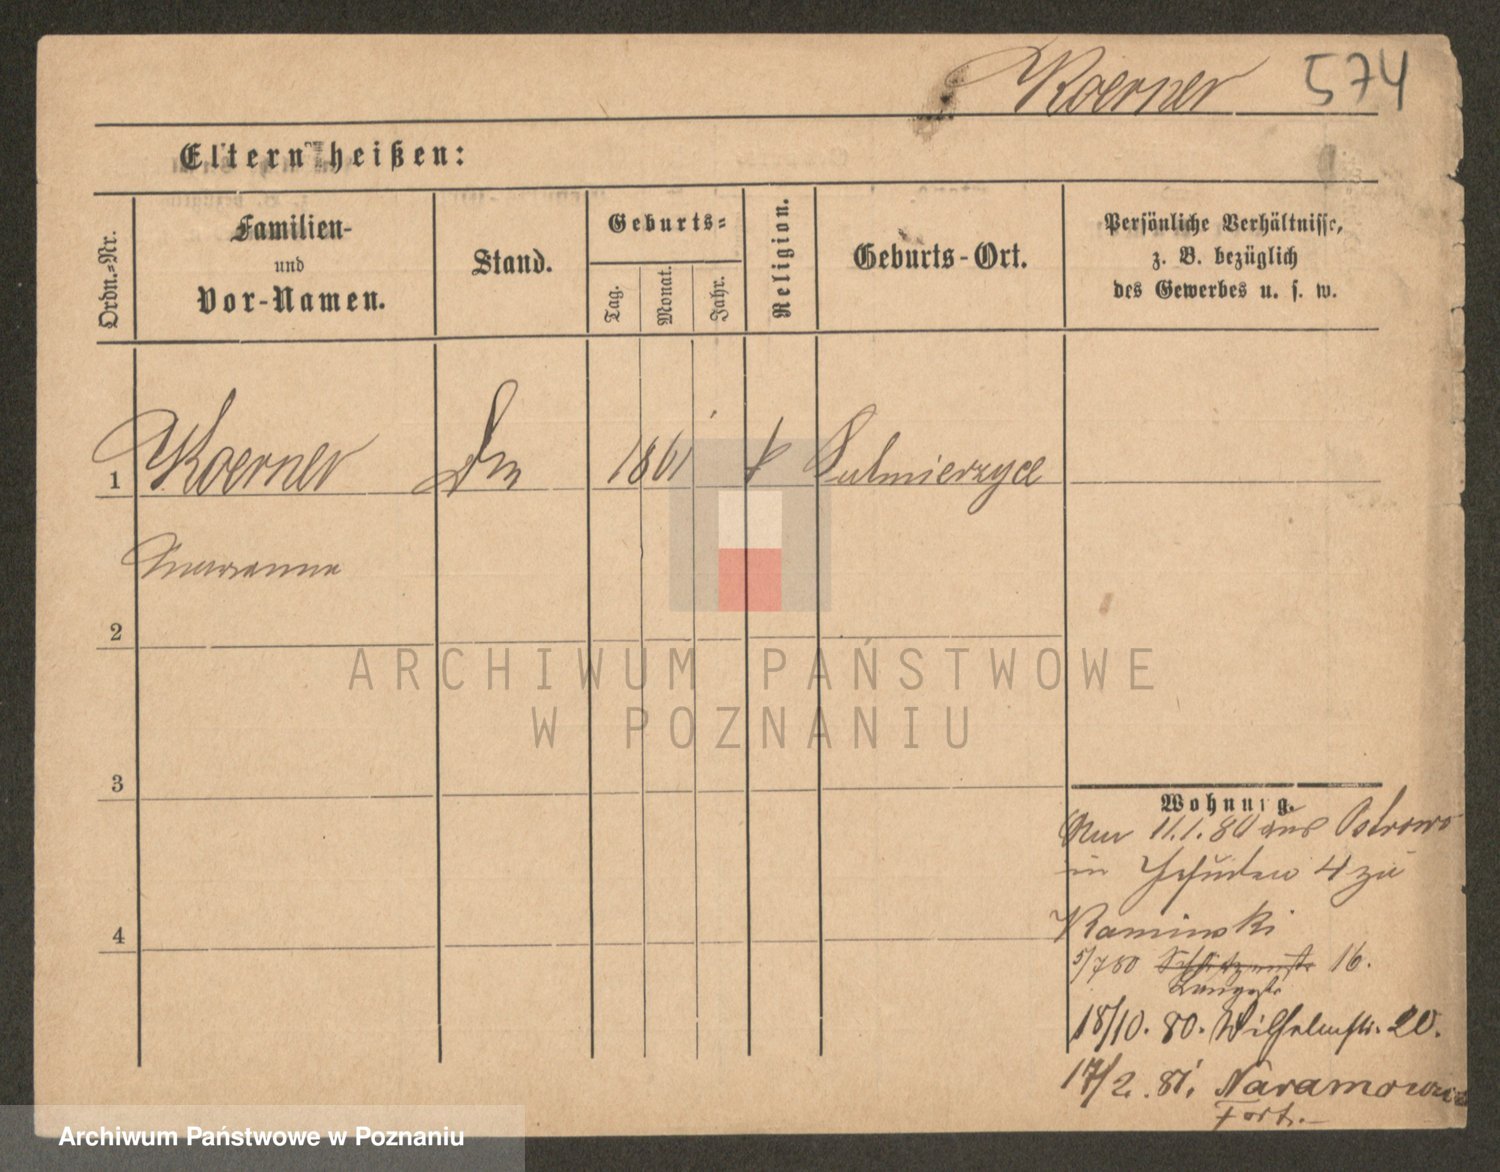 Koerner 574
Eltern heißen:
Ordn.-Nr.
Familien-
und
Vor-Namen.
Stand.
Geburts-
Tag.
Monat.
Jahr.
Religion.
Geburts-Ort.
Persönliche Verhältnisse,
z. B. bezüglich
des Gewerbes u. s. w.
1 Koerner 1861 k Sulmierzyce
Marianna
2
ARCHIWUM PAŃSTWOWE
W POZNANIU
3
Wohnung.
11.1.80 aus Ostrowo
in 4 zu
4
Kaminski
5/7 80 Schützenstr 16.
Langestr
18/10. 80. Wilhelmstr. 20.
17/2. 81. Naramowice
Fort.
Archiwum Państwowe w Poznaniu